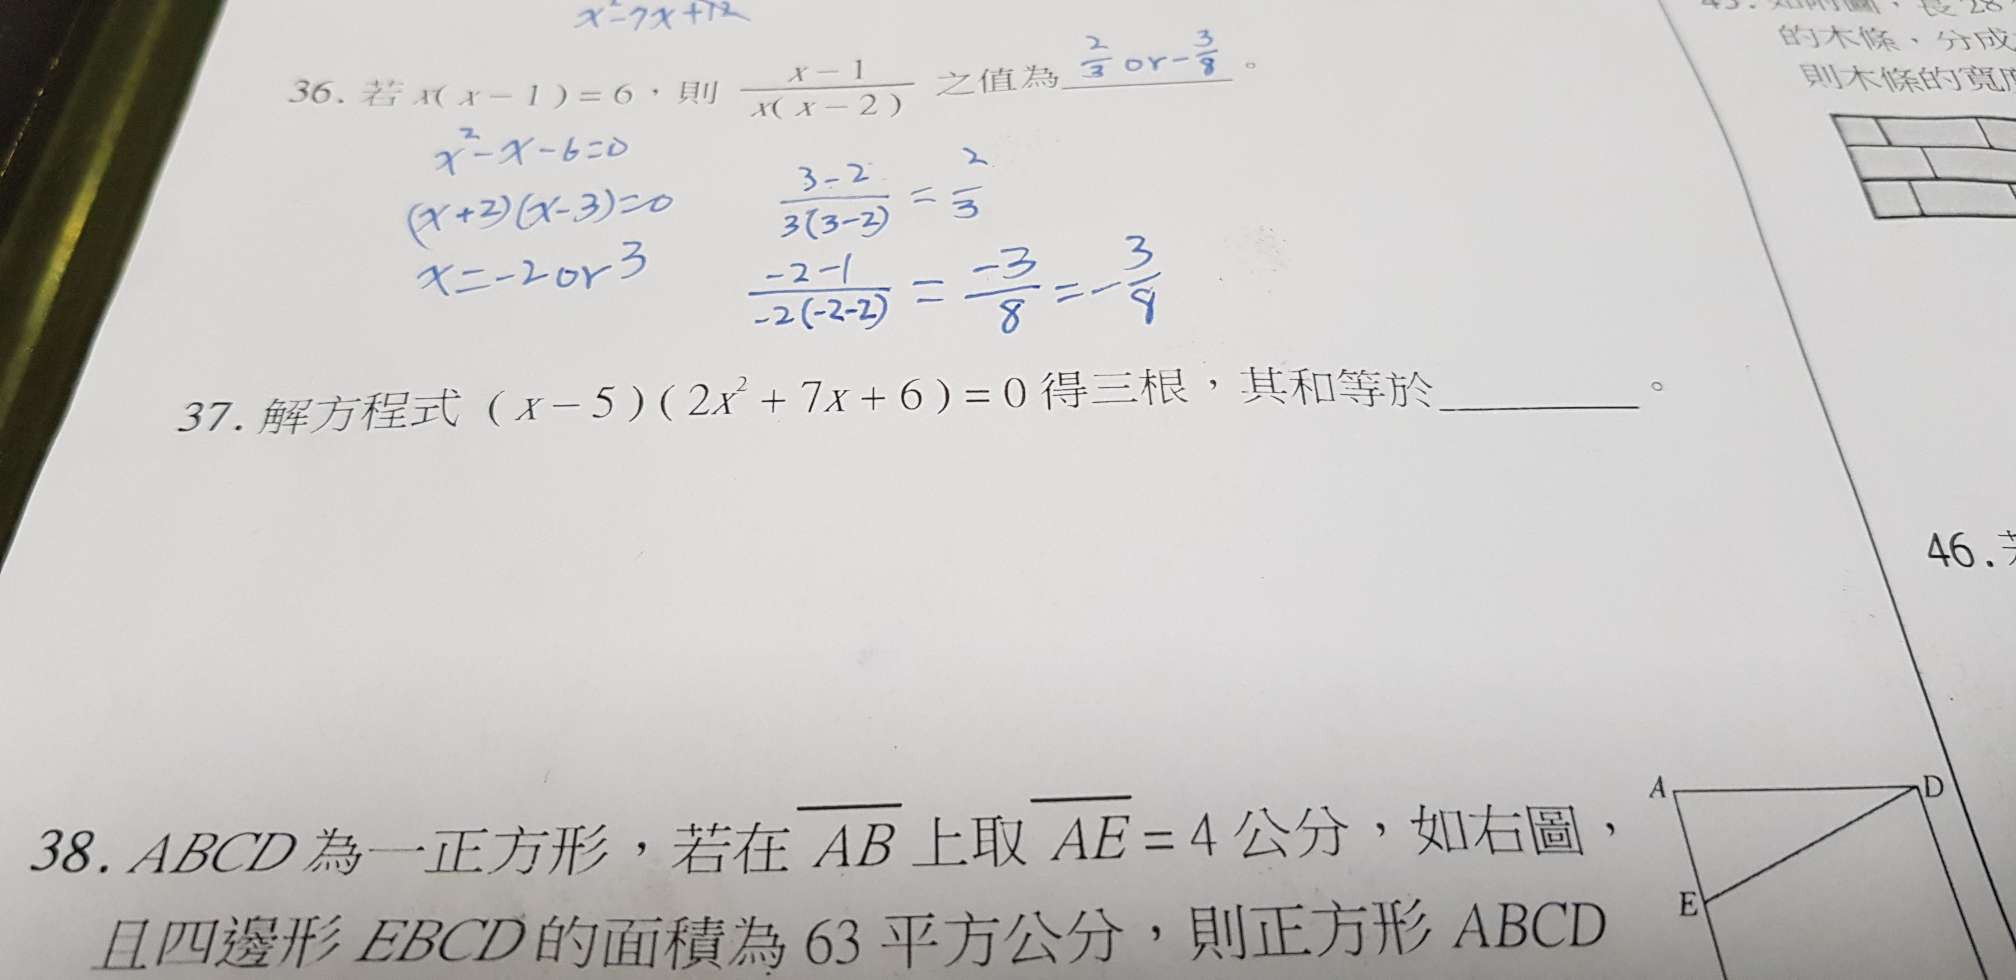 x²-7x+12
36. 若 x( x − 1 ) = 6，則 \frac{x − 1}{x( x − 2 )} 之值為 \frac{2}{3} or -\frac{3}{8} 。
x²-x-6=0
(x+2)(x-3)=0
x=-2 or 3
\frac{3-2}{3(3-2)} = \frac{2}{3}
\frac{-2-1}{-2(-2-2)} = \frac{-3}{8} = -\frac{3}{8}
37. 解方程式 ( x − 5 ) ( 2x² + 7x + 6 ) = 0 得三根，其和等於________。
38. ABCD 為一正方形，若在 \overline{AB} 上取 \overline{AE} = 4 公分，如右圖，
且四邊形 EBCD 的面積為 63 平方公分，則正方形 ABCD
A
D
E
的木條，分成
則木條的寬
46.